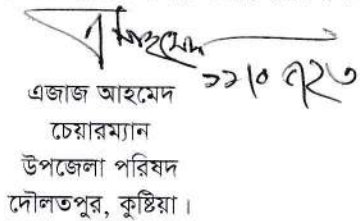 এজাজ আহমেদ
চেয়ারম্যান
উপজেলা পরিষদ
দৌলতপুর, কুষ্টিয়া।